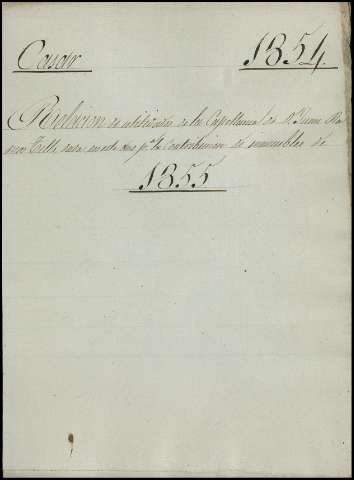 Casar 1854.
Relacion de utilidades de la Capellania de Dn. Juan
Tello, para pa. la Contribucion de inmuebles de
1855